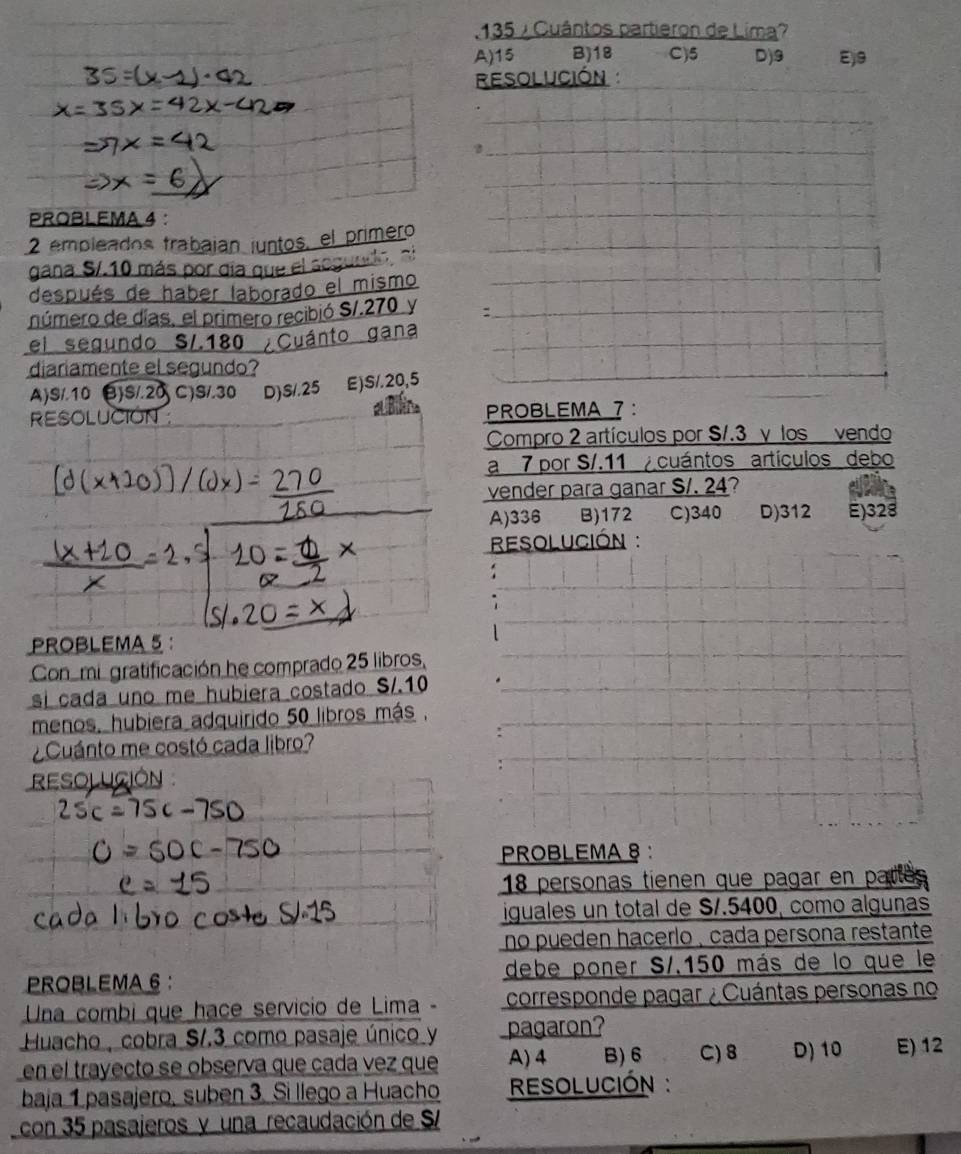 35=(x-1)·42
x=35x=42x-42⇒
⇒7x=42
⇒x=6
PROBLEMA 4 :
2 empleados trabajan juntos, el primero
gana S/.10 más por día que el segundo, si
después de haber laborado el mismo
número de días, el primero recibió S/.270 y
el segundo S/.180 ¿Cuánto gana
diariamente el segundo?
A)S/.10 B)S/.20 C)S/.30 D)S/.25 E)S/.20,5
RESOLUCIÓN :
[d(x+10)]/(dx)=270/180
(x+10)/x=1.5
10=1/2 x
S/.20=x
PROBLEMA 5 :
Con mi gratificación he comprado 25 libros,
si cada uno me hubiera costado S/.10
menos, hubiera adquirido 50 libros más ,
¿Cuánto me costó cada libro?
RESOLUCIÓN :
25c=75c-750
0=50c-750
c=15
cada libro costo S/.15
PROBLEMA 6 :
Una combi que hace servicio de Lima -
Huacho , cobra S/.3 como pasaje único y
en el trayecto se observa que cada vez que
baja 1 pasajero, suben 3. Si llego a Huacho
con 35 pasajeros y una recaudación de S/
.135 ¿Cuántos partieron de Lima?
A)15 B)18 C)5 D)9 E)9
RESOLUCIÓN :
PROBLEMA 7 :
Compro 2 artículos por S/.3 y los vendo
a 7 por S/.11 ¿cuántos artículos debo
vender para ganar S/. 24?
A)336 B)172 C)340 D)312 E)328
RESOLUCIÓN :
PROBLEMA 8 :
18 personas tienen que pagar en partes
iguales un total de S/.5400, como algunas
no pueden hacerlo , cada persona restante
debe poner S/.150 más de lo que le
corresponde pagar ¿Cuántas personas no
pagaron?
A) 4 B) 6 C) 8 D) 10 E) 12
RESOLUCIÓN :